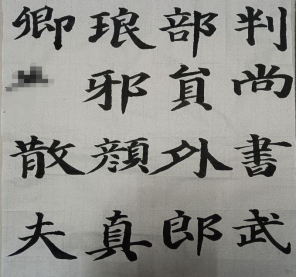 判尚書武
部貟外郎
琅邪顔真
卿散夫